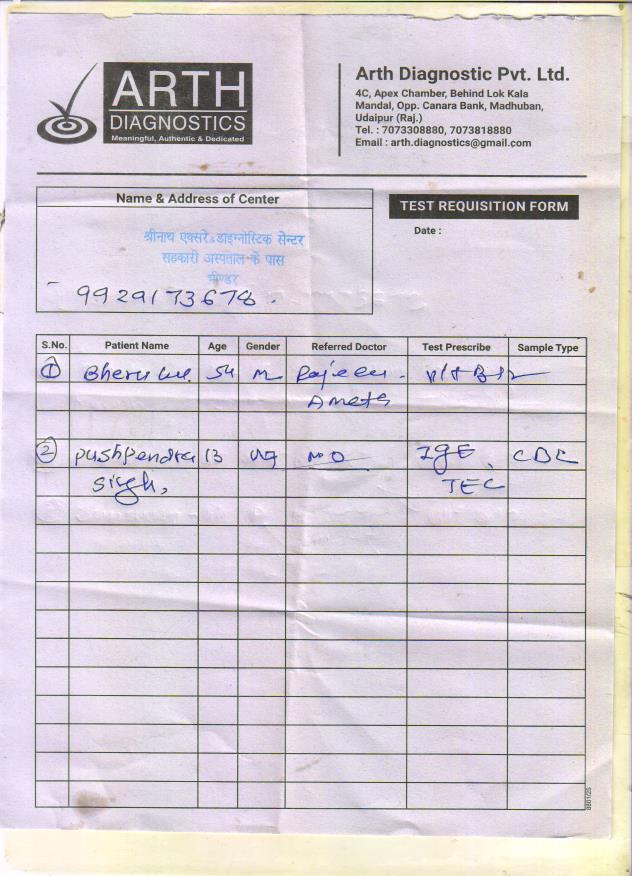 ARTH
DIAGNOSTICS
Meaningful, Authentic & Dedicated
Arth Diagnostic Pvt. Ltd.
4C, Apex Chamber, Behind Lok Kala
Mandal, Opp. Canara Bank, Madhuban,
Udaipur (Raj.)
Tel. : 7073308880, 7073818880
Email : arth.diagnostics@gmail.com
Name & Address of Center
श्रीनाथ एक्सरे & डाइग्नोस्टिक सेन्टर
सहकारी अस्पताल के पास
भीण्डर
9929173678.
TEST REQUISITION FORM
Date :
S.No. Patient Name Age Gender Referred Doctor Test Prescribe Sample Type
1 Bheru 54 M Rajeev
Ameta
2 Pushpendra 13 M NO IgE, CBC
Singh, TEC
8801/25